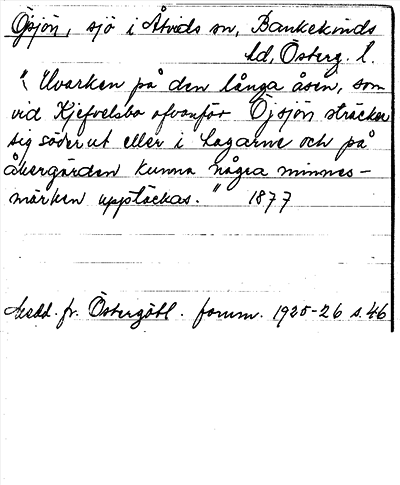 Öjsjön, sjö i Åtveds sn, Bankekinds
hd, Österg. l.
"Hvarken på den långa åsen, som
vid Kjefvelsbo ofvanför Öjsjön sträcker
sig söder ut eller i hagarne och på
åkergärden kunna några minnes-
märken upptäckas." 1877
Medd. fr. Östergötl. fornm. 1925-26 s. 46